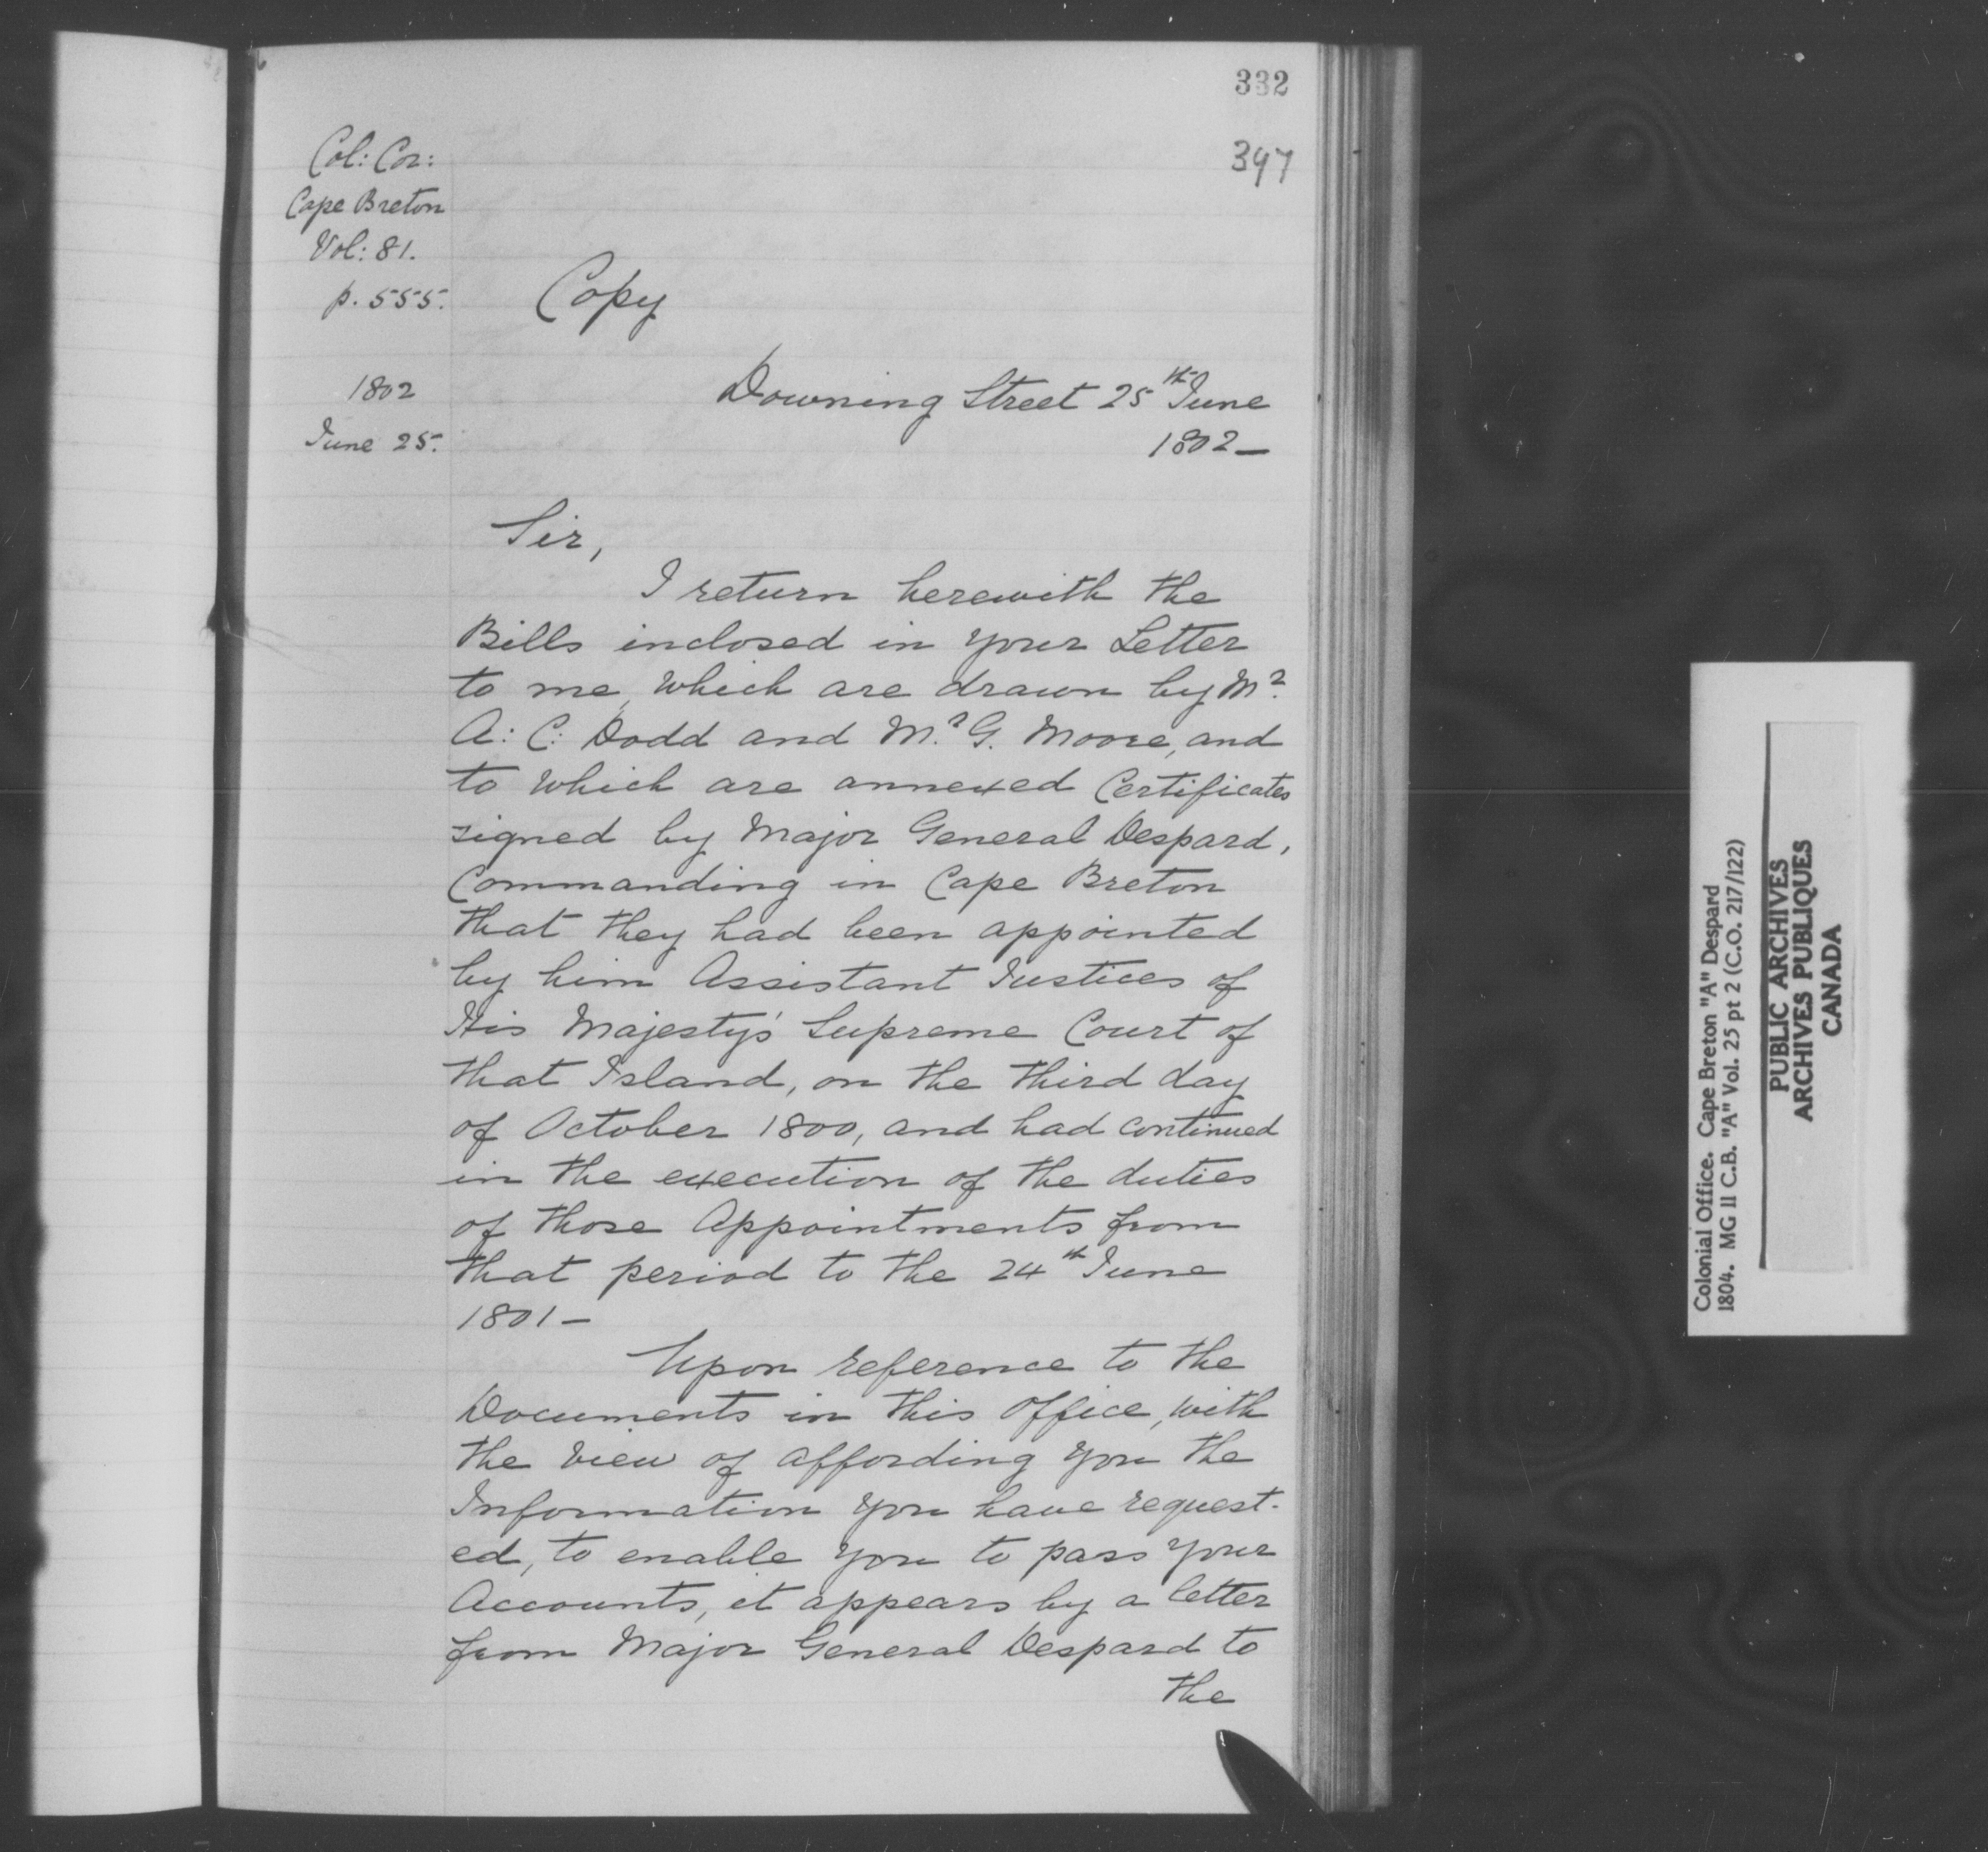 332
397
Col: Cor:
Cape Breton
Vol: 81.
p. 555.
Copy
1802
June 25.
Downing Street 25th June
1802—
Sir,
I return herewith the
Bills inclosed in your Letter
to me, which are drawn by Mr.
A: C: Dodd and Mr. G. Moore, and
to which are annexed Certificates
signed by Major General Despard,
Commanding in Cape Breton
that they had been appointed
by him Assistant Justices of
His Majesty's Supreme Court of
that Island, on the third day
of October 1800, and had continued
in the execution of the duties
of those Appointments from
that period to the 24th June
1801—
Upon reference to the
Documents in this Office, with
the view of affording you the
Information you have request-
ed, to enable you to pass your
Accounts, it appears by a letter
from Major General Despard to
the
Colonial Office. Cape Breton "A" Despard
1804. MG 11 C.B. "A" Vol. 25 pt 2 (C.O. 217/122)
PUBLIC ARCHIVES
ARCHIVES PUBLIQUES
CANADA